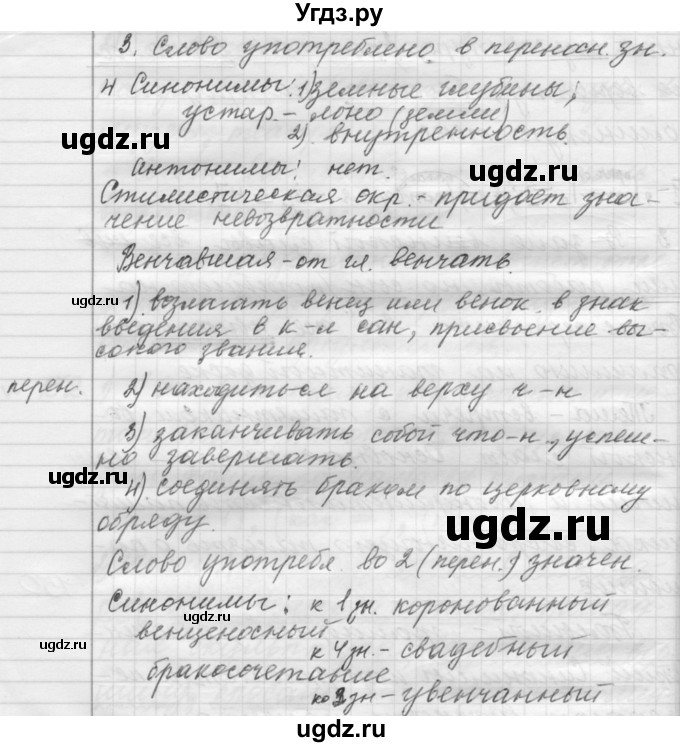 Угдз.ру
3. Слово употреблено в переносн. зн.
4 Синонимы: 1) земные глубины;
устар. - лоно (земли)
ugdz.ru
ugdz.ru
2) внутренность.
Антонимы: нет.
ugdz.ru
Стилистическая окр. - придает зна-
чение невозвратности
Венчавшая - от гл. венчать.
ugdz.ru
1) возлагать венец или венок в знак
введения в к-л сан, присвоение вы-
сокого звания.
перен. 2) находиться на верху ч-н
3) заканчивать собой что-н., успеш-
но завершать.
ugdz.ru
ugdz.ru
4) соединять браком по церковному
обряду.
ugdz.ru
Слово употребл. во 2 (перен.) значен.
Синонимы: к 1 зн. коронованный
ugdz.ru
венценосный
к 4 зн. - свадебный
бракосочетавшие
ко 3 зн - увенчанный
ugdz.ru
ugdz.ru